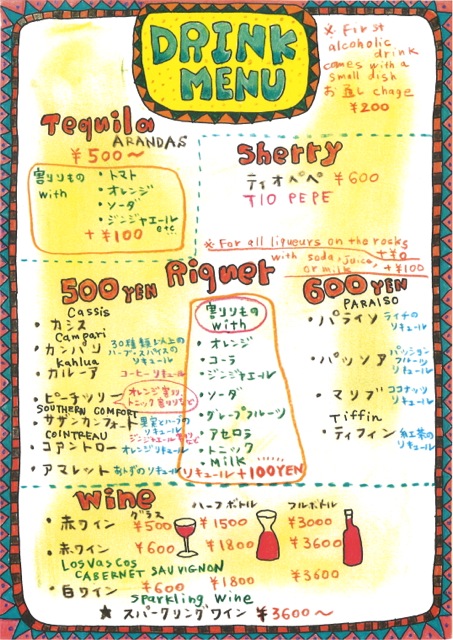 DRINK
MENU
※ First
alcoholic
drink
comes with a
small dish
お通し chage
¥200
Tequila
ARANDAS
¥500～
割りもの
with
・トマト
・オレンジ
・ソーダ
・ジンジャエール
etc
+¥100
Sherry
ティオペペ ¥600
TIO PEPE
※For all liqueurs on the rocks +¥0
with soda, juice,
or milk +¥100
Riquer
500YEN
Cassis
・カシス
Campari
・カンパリ 30種類以上のハーブ・スパイスのリキュール
Kahlua
・カルーア コーヒーリキュール
・ピーチツリー オレンジ割り、トニック割りなど
SOUTHERN COMFORT
・サザンカンフォート 果実とハーブのリキュール ジンジャエール割りなど
COINTREAU
・コアントロー オレンジリキュール
・アマレット あんずのリキュール
割りもの
with
・オレンジ
・コーラ
・ジンジャエール
・ソーダ
・グレープフルーツ
・アセロラ
・トニック
・Milk
リキュール+100YEN
600YEN
PARAISO
・パライソ ライチのリキュール
・パッソア パッションフルーツリキュール
・マリブ ココナッツリキュール
Tiffin
・ティフィン 紅茶のリキュール
Wine
グラス ハーフボトル フルボトル
・赤ワイン ¥500 ¥1500 ¥3000
・赤ワイン ¥600 ¥1800 ¥3600
Los Vascos
CABERNET SAUVIGNON
・白ワイン ¥600 ¥1800 ¥3600
Sparkling Wine
★ スパークリングワイン ¥3600～